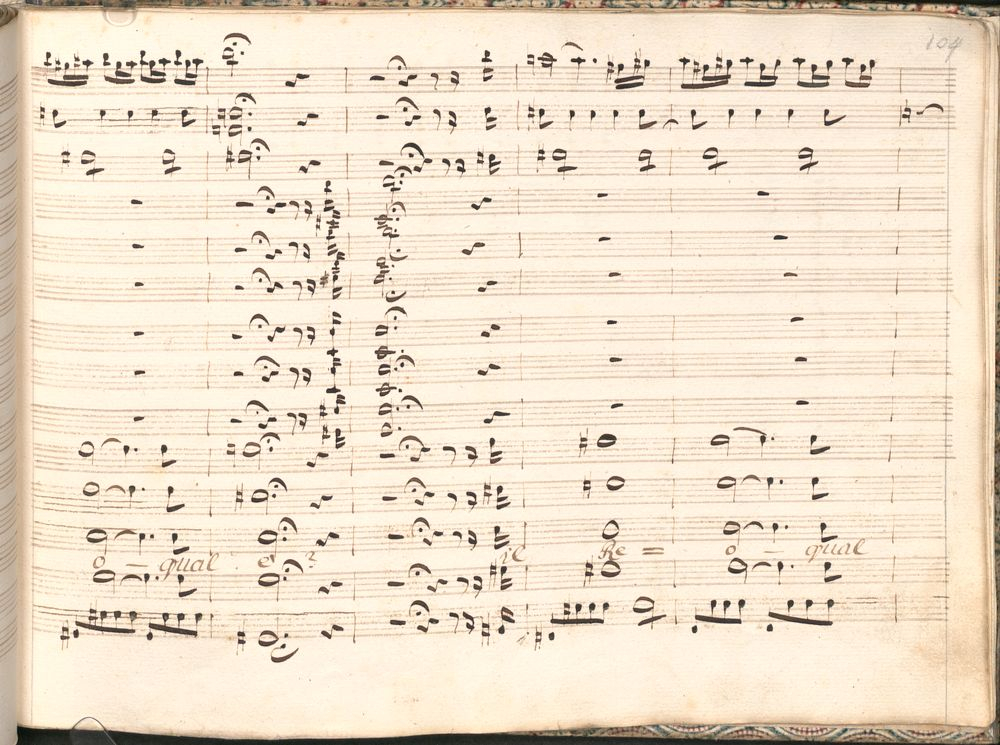 104
o - qual e ? il Re = o - qual